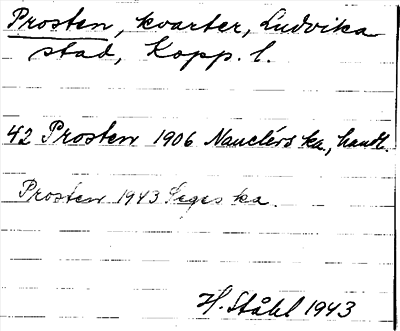 Prosten, kvarter, Ludvika
stad, Kopp. l.
42 Prosten 1906 Nauclérs ka., handl.
Prosten 1943 Seges ka.
H. Ståhl 1943